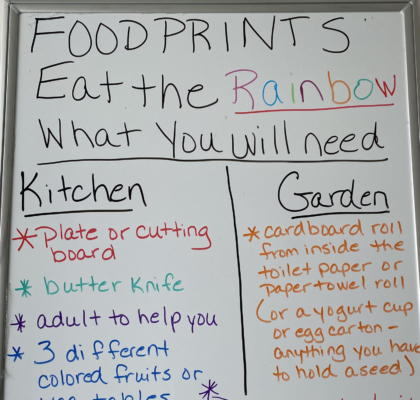 FOODPRINTS
Eat the Rainbow
What You will need
Kitchen
* Plate or cutting
board
* butter knife
* adult to help you
* 3 different
colored fruits or
Garden
* cardboard roll
from inside the
toilet paper or
paper towel roll
(or a yogurt cup
or egg carton -
anything you have
to hold a seed)
*